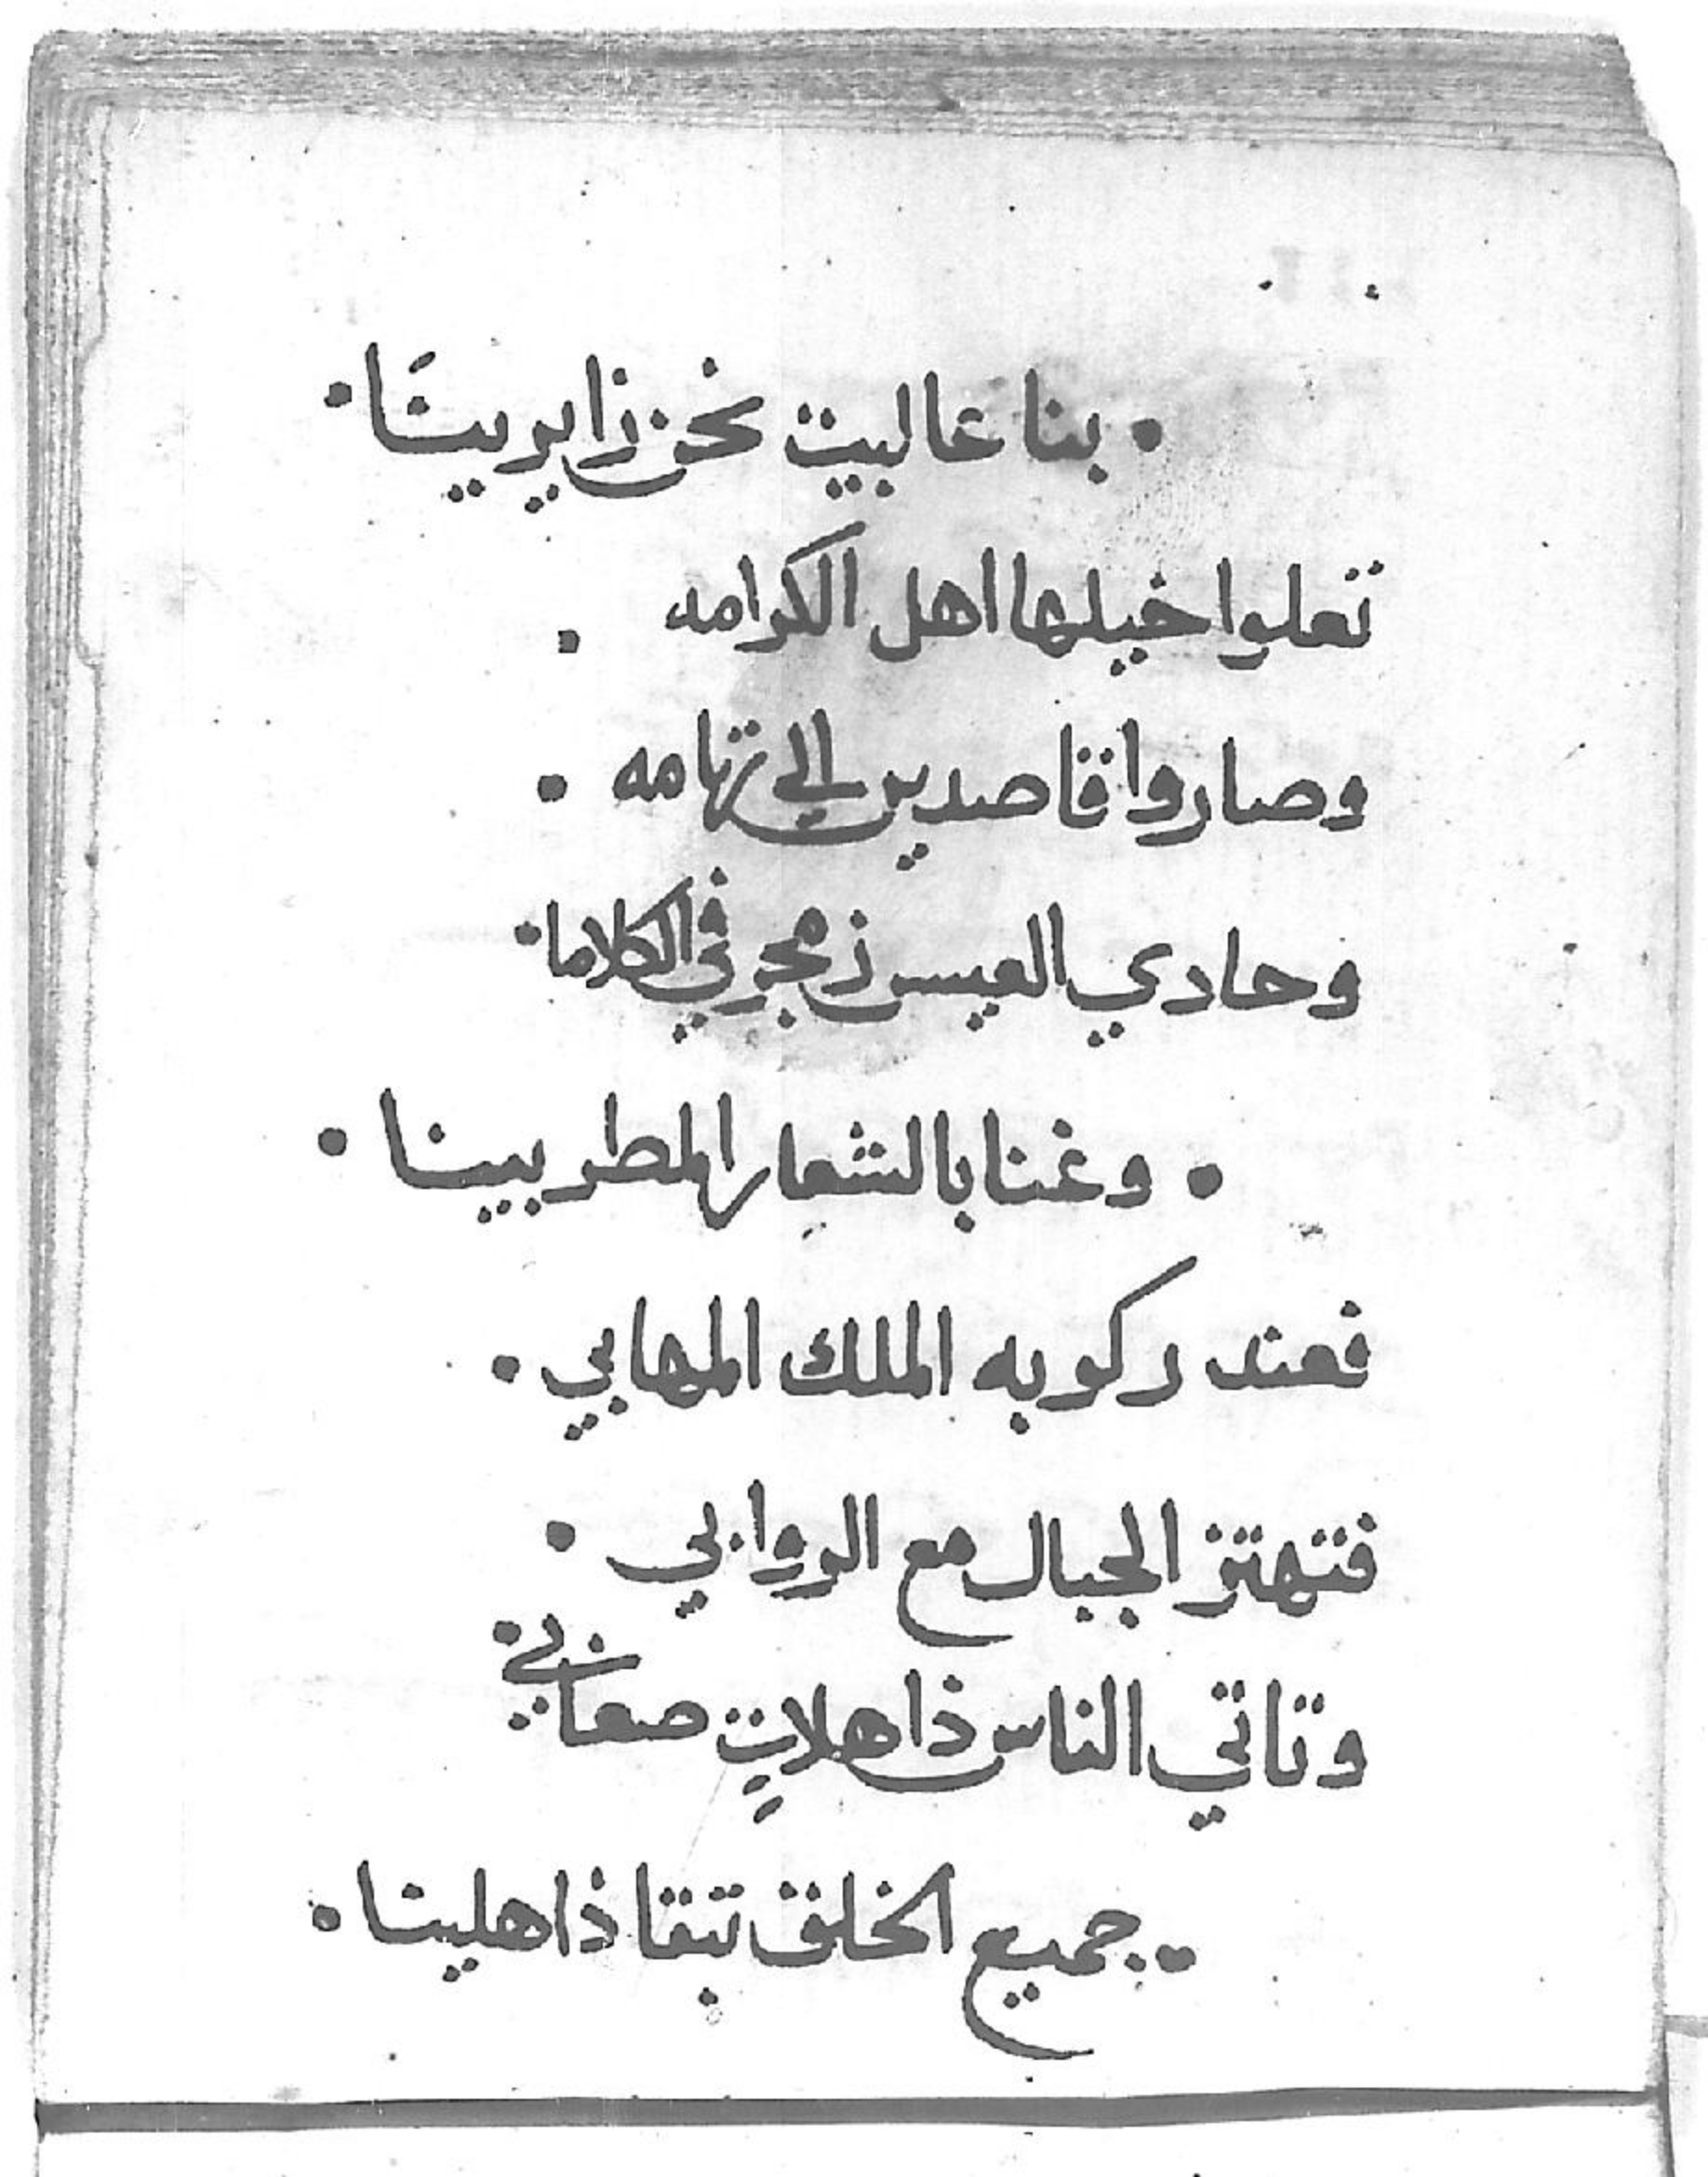 • بنا عالبيت نحن زايريينَا •
تعلوا خيلها اهل الكرامه •
وصاروا قاصدين الي تهامه •
وحادي العيس زمجر في الكلاما •
• وغنا بالشعار المطربينا •
فعند ركوبه الملك المهابي •
فتهتز الجبال مع الروابي •
وتاتي الناس ذاهلاتٍ صعاني
• جميع الخلق تبقا ذاهلينا •